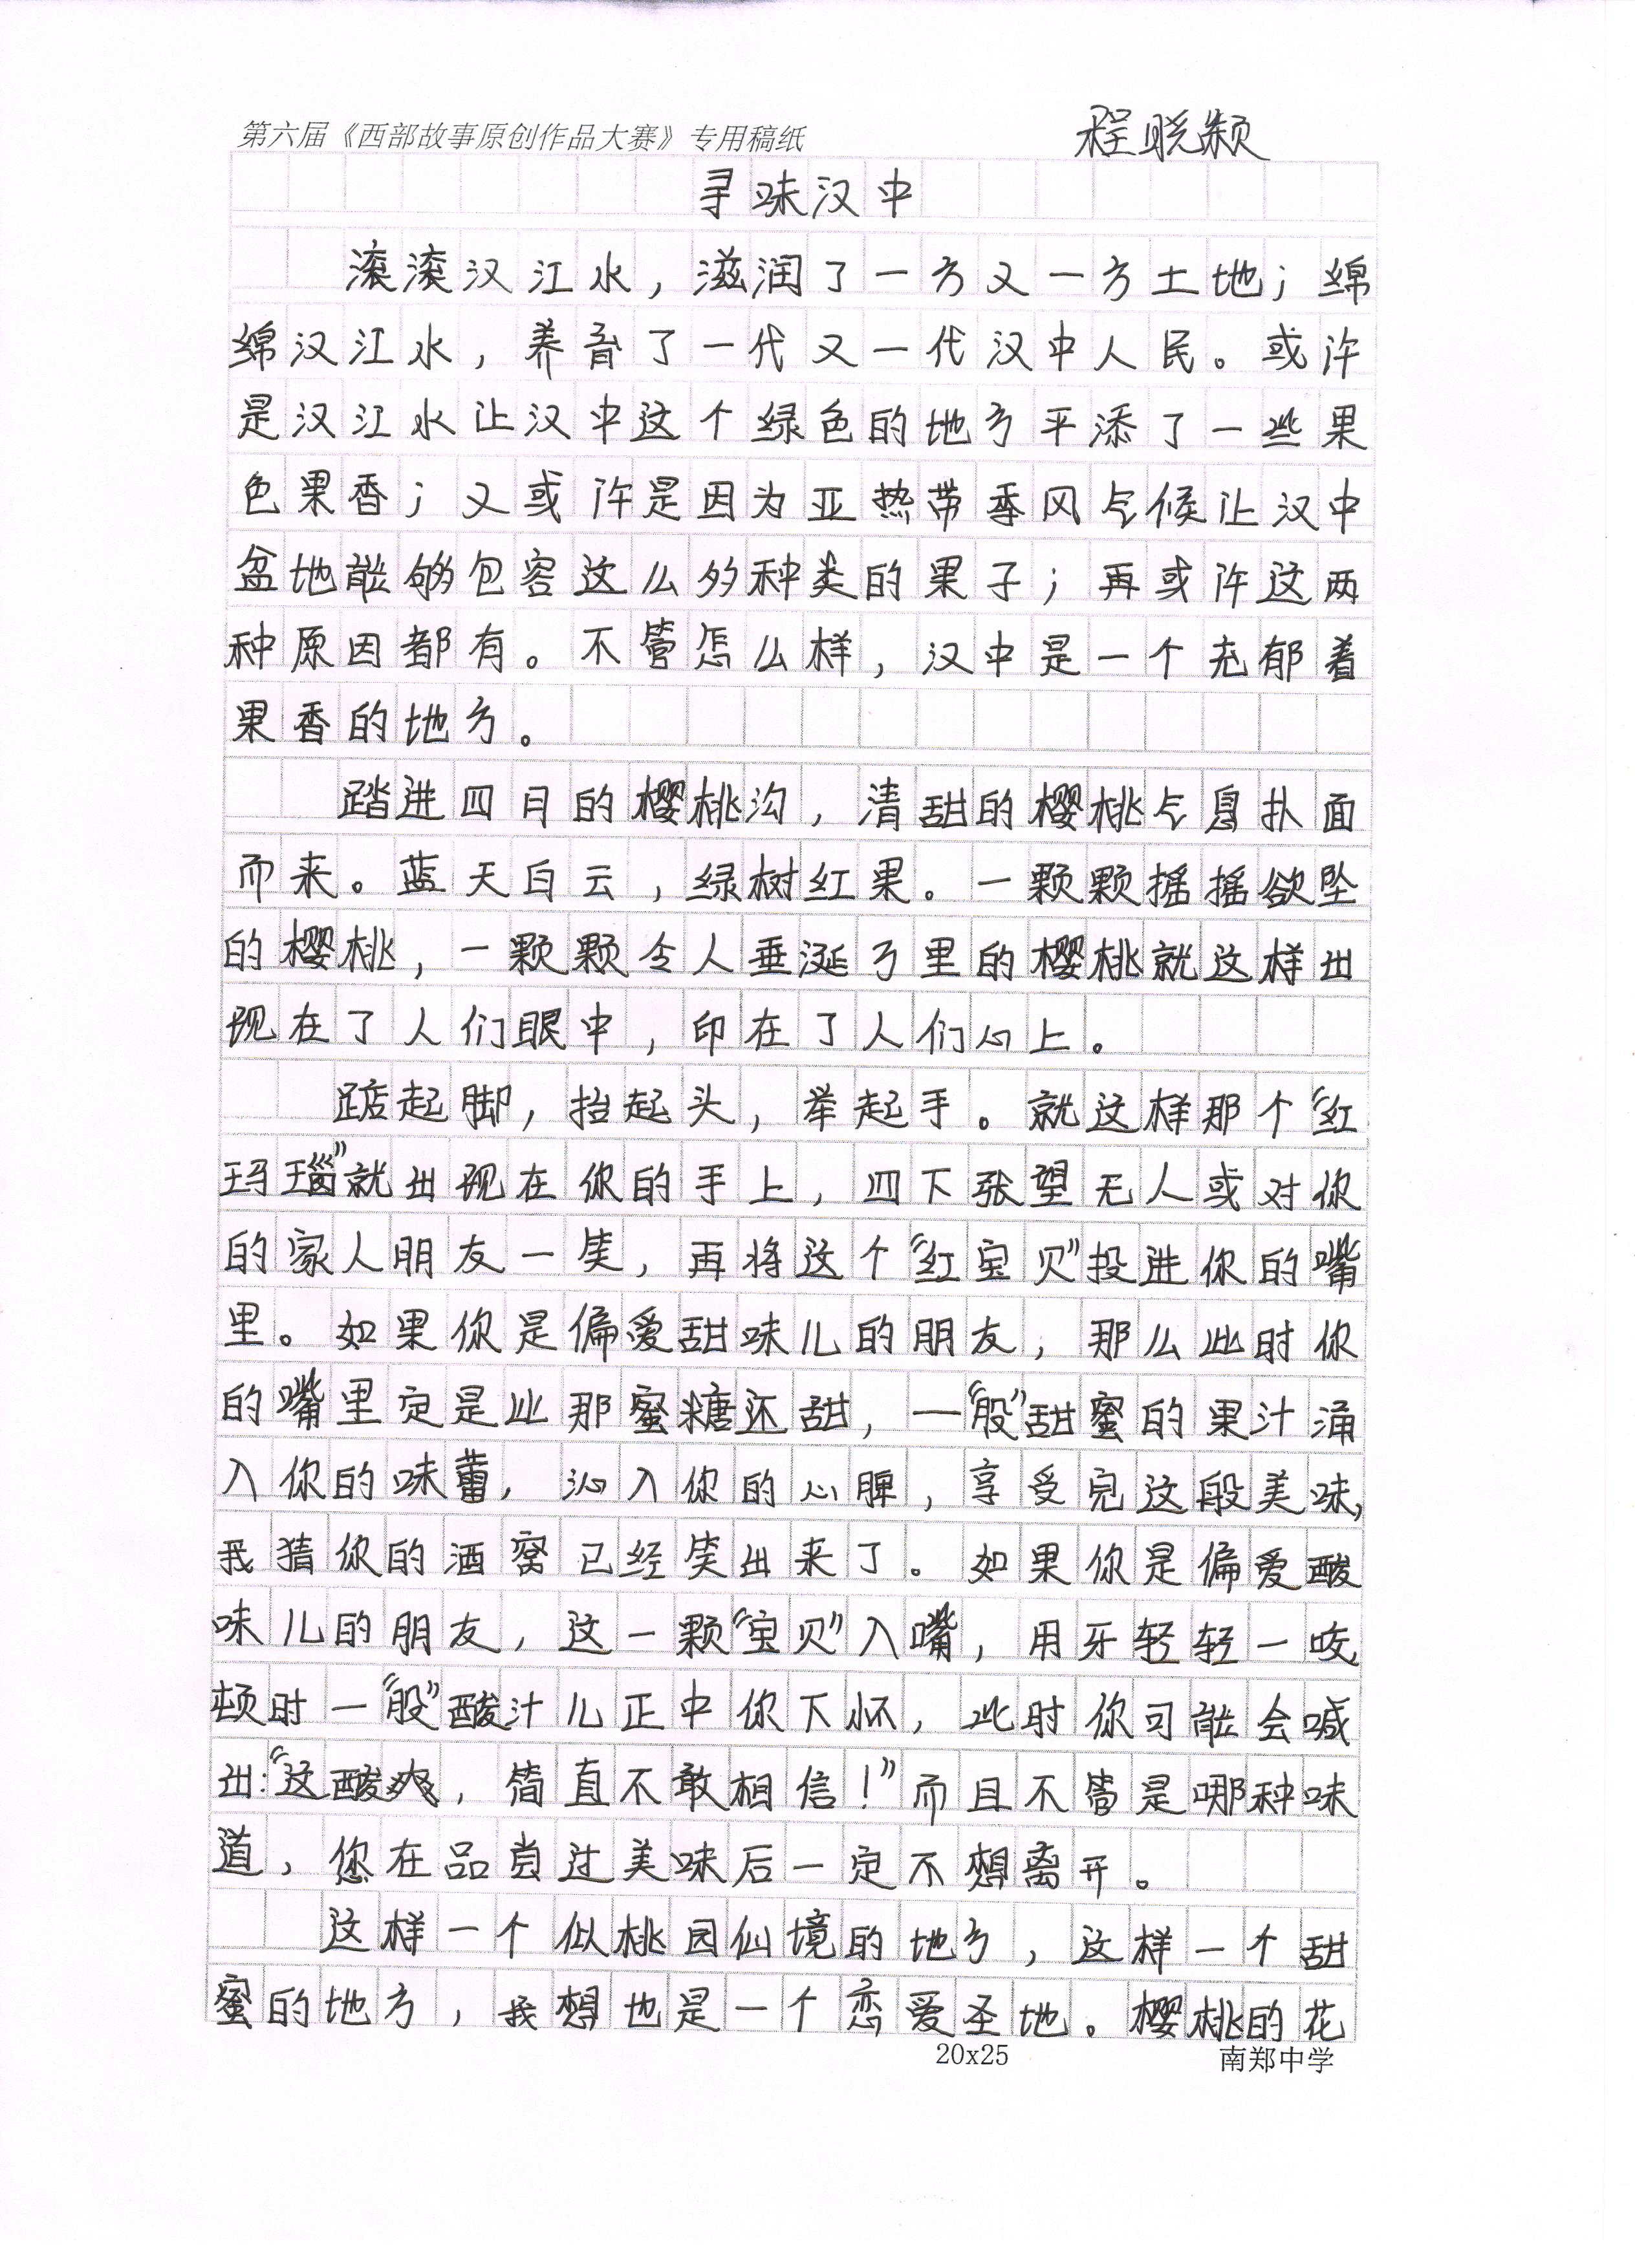 第六届《西部故事原创作品大赛》专用稿纸 程晓颖
寻味汉中
滚滚汉江水，滋润了一方又一方土地；绵
绵汉江水，养育了一代又一代汉中人民。或许
是汉江水让汉中这个绿色的地方平添了一些果
色果香；又或许是因为亚热带季风气候让汉中
盆地能够包容这么多种类的果子；再或许这两
种原因都有。不管怎么样，汉中是一个充郁着
果香的地方。
踏进四月的樱桃沟，清甜的樱桃气息扑面
而来。蓝天白云，绿树红果。一颗颗摇摇欲坠
的樱桃，一颗颗令人垂涎万里的樱桃就这样出
现在了人们眼中，印在了人们心上。
踮起脚，抬起头，举起手。就这样那个“红
玛瑙”就出现在你的手上，四下张望无人或对你
的家人朋友一笑，再将这个“红宝贝”投进你的嘴
里。如果你是偏爱甜味儿的朋友，那么此时你
的嘴里定是比那蜜糖还甜，一“股”甜蜜的果汁涌
入你的味蕾，沁入你的心脾，享受完这段美味，
我猜你的酒窝已经笑出来了。如果你是偏爱酸
味儿的朋友，这一颗“宝贝”入嘴，用牙轻轻一咬，
顿时一“股”酸汁儿正中你下怀，此时你可能会喊
出：“这酸爽，简直不敢相信！”而且不管是哪种味
道，您在品尝过美味后一定不想离开。
这样一个似桃园仙境的地方，这样一个甜
蜜的地方，我想也是一个恋爱圣地。樱桃的花
20x25 南郑中学